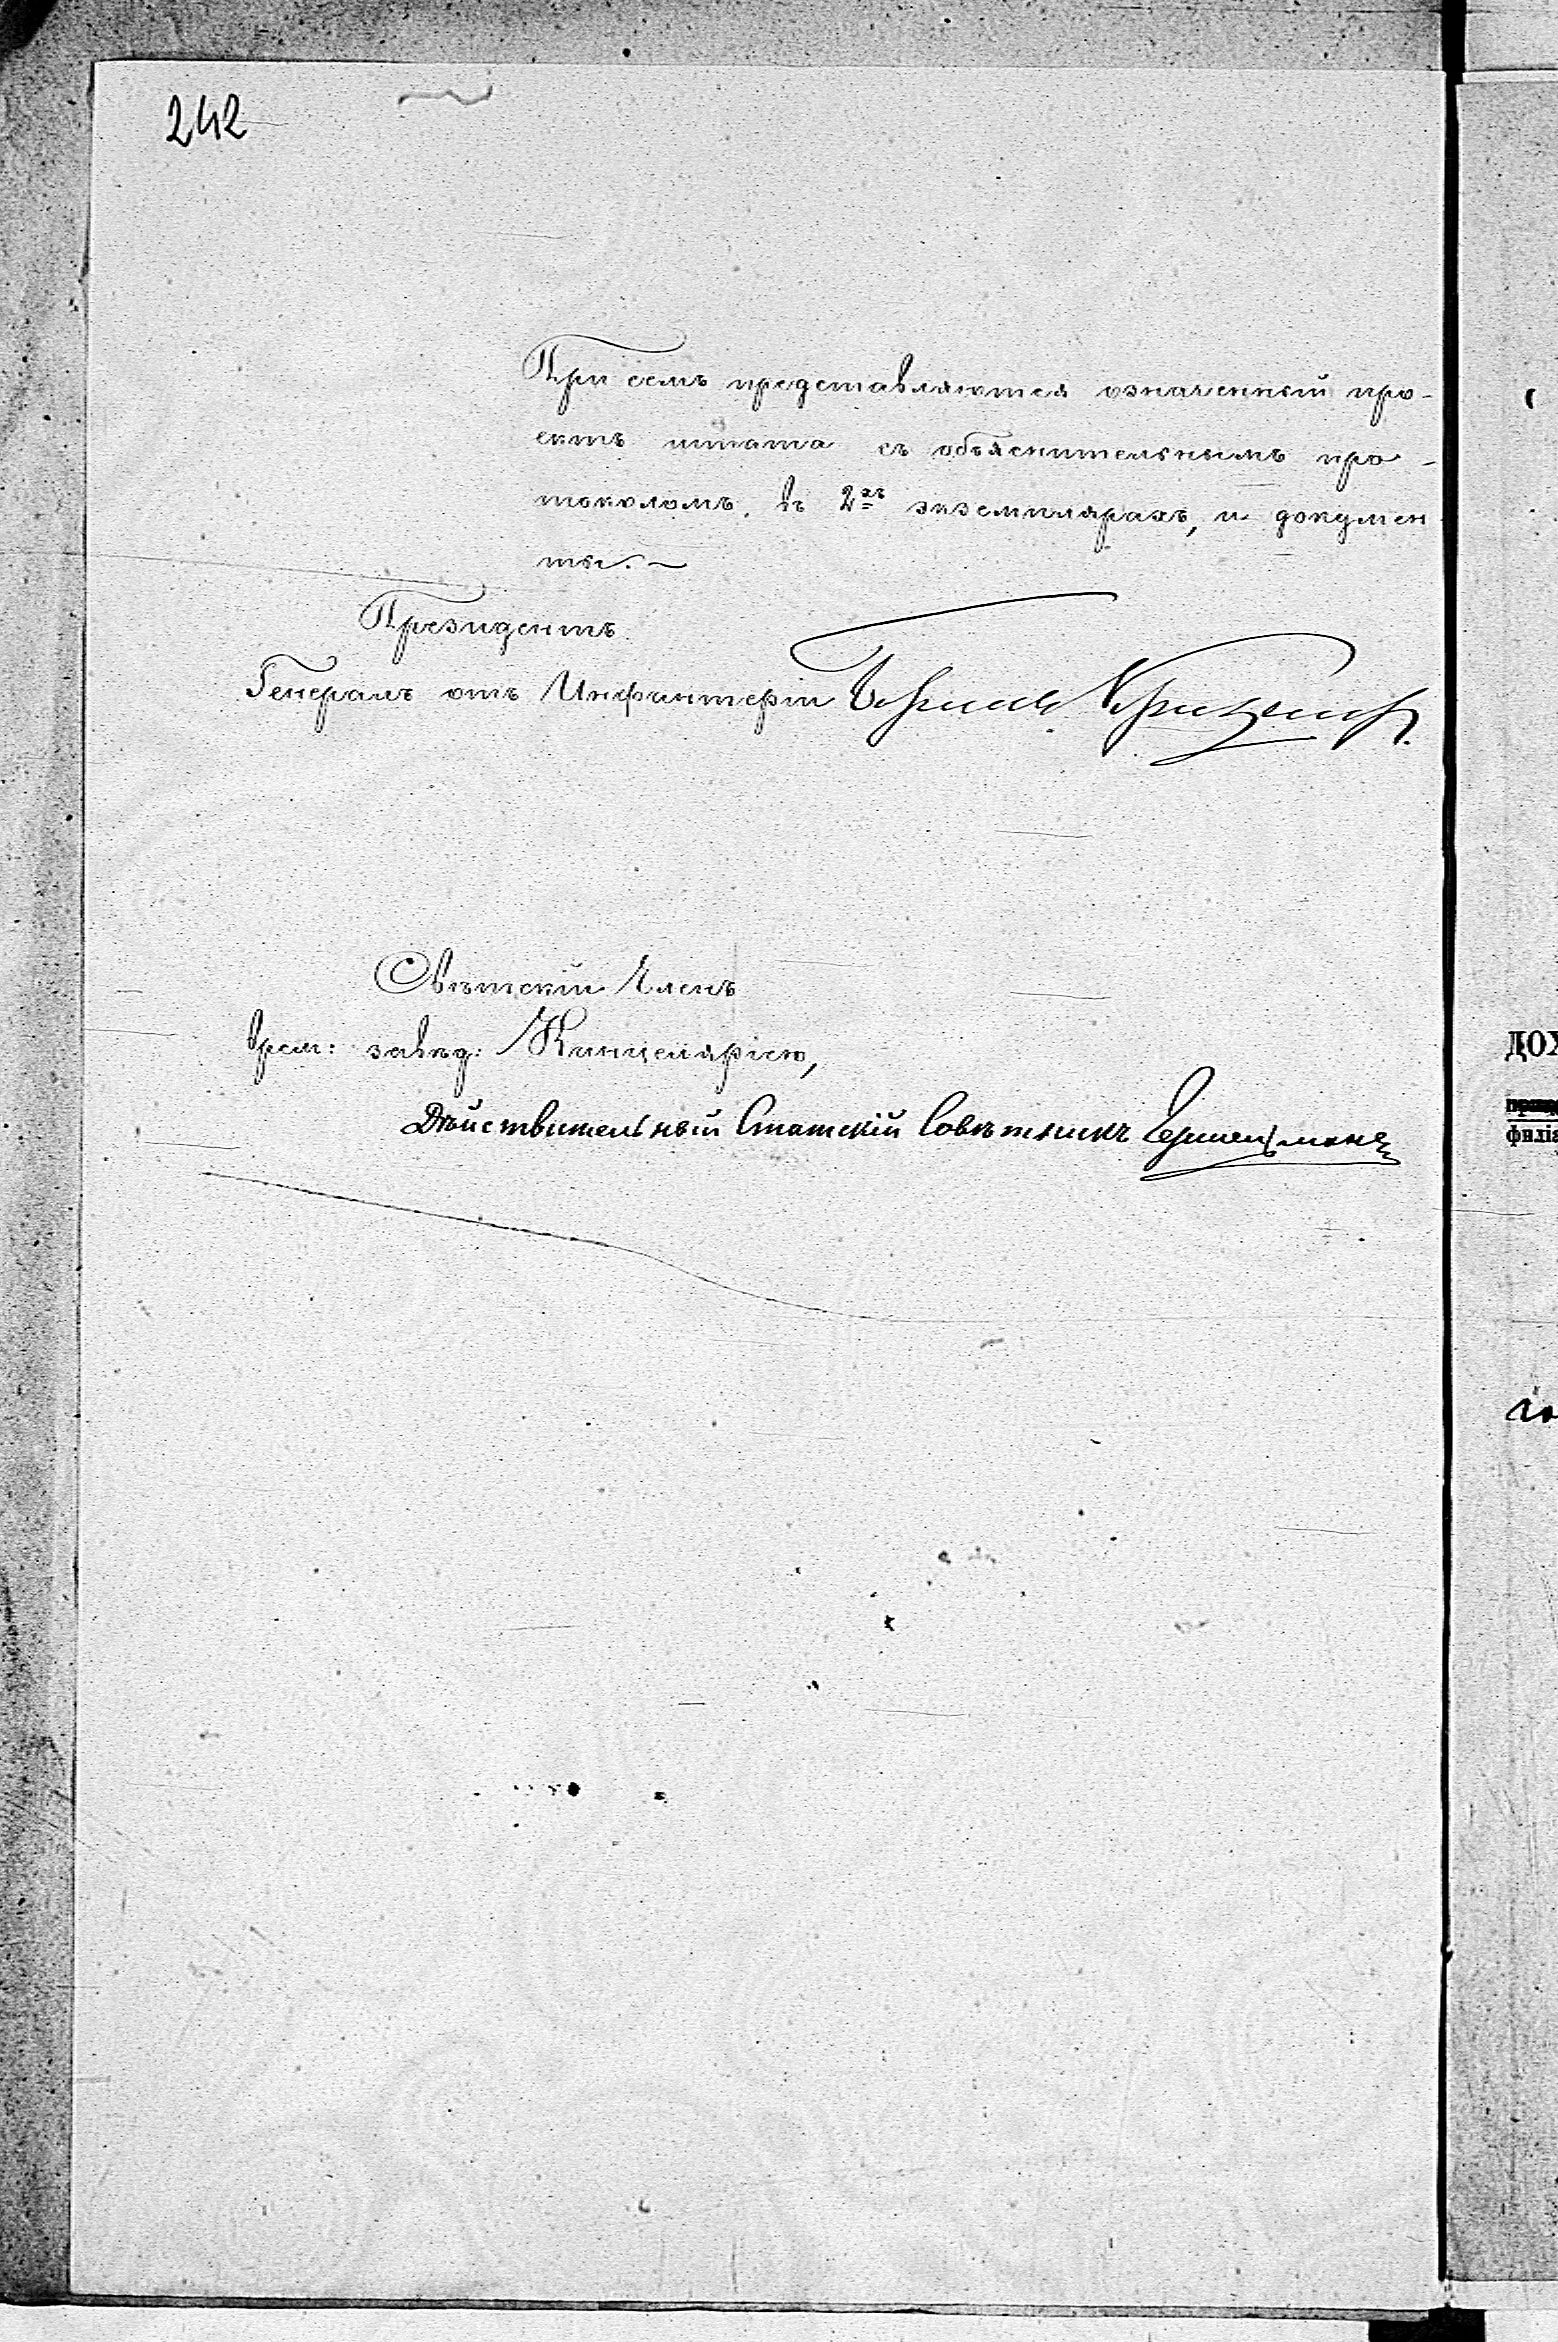 242
При семъ представляются означенный про-
ектъ штата съ объяснительнымъ про-
токоломъ, въ 2хъ экземплярахъ, и докумен
ты.
Президентъ
Генералъ отъ Инфантеріи
Свѣтскій Членъ
врем: завѣд: Канцеляріею,
Дѣйствительный Статскій Совѣтникъ
ДОХ
филіа